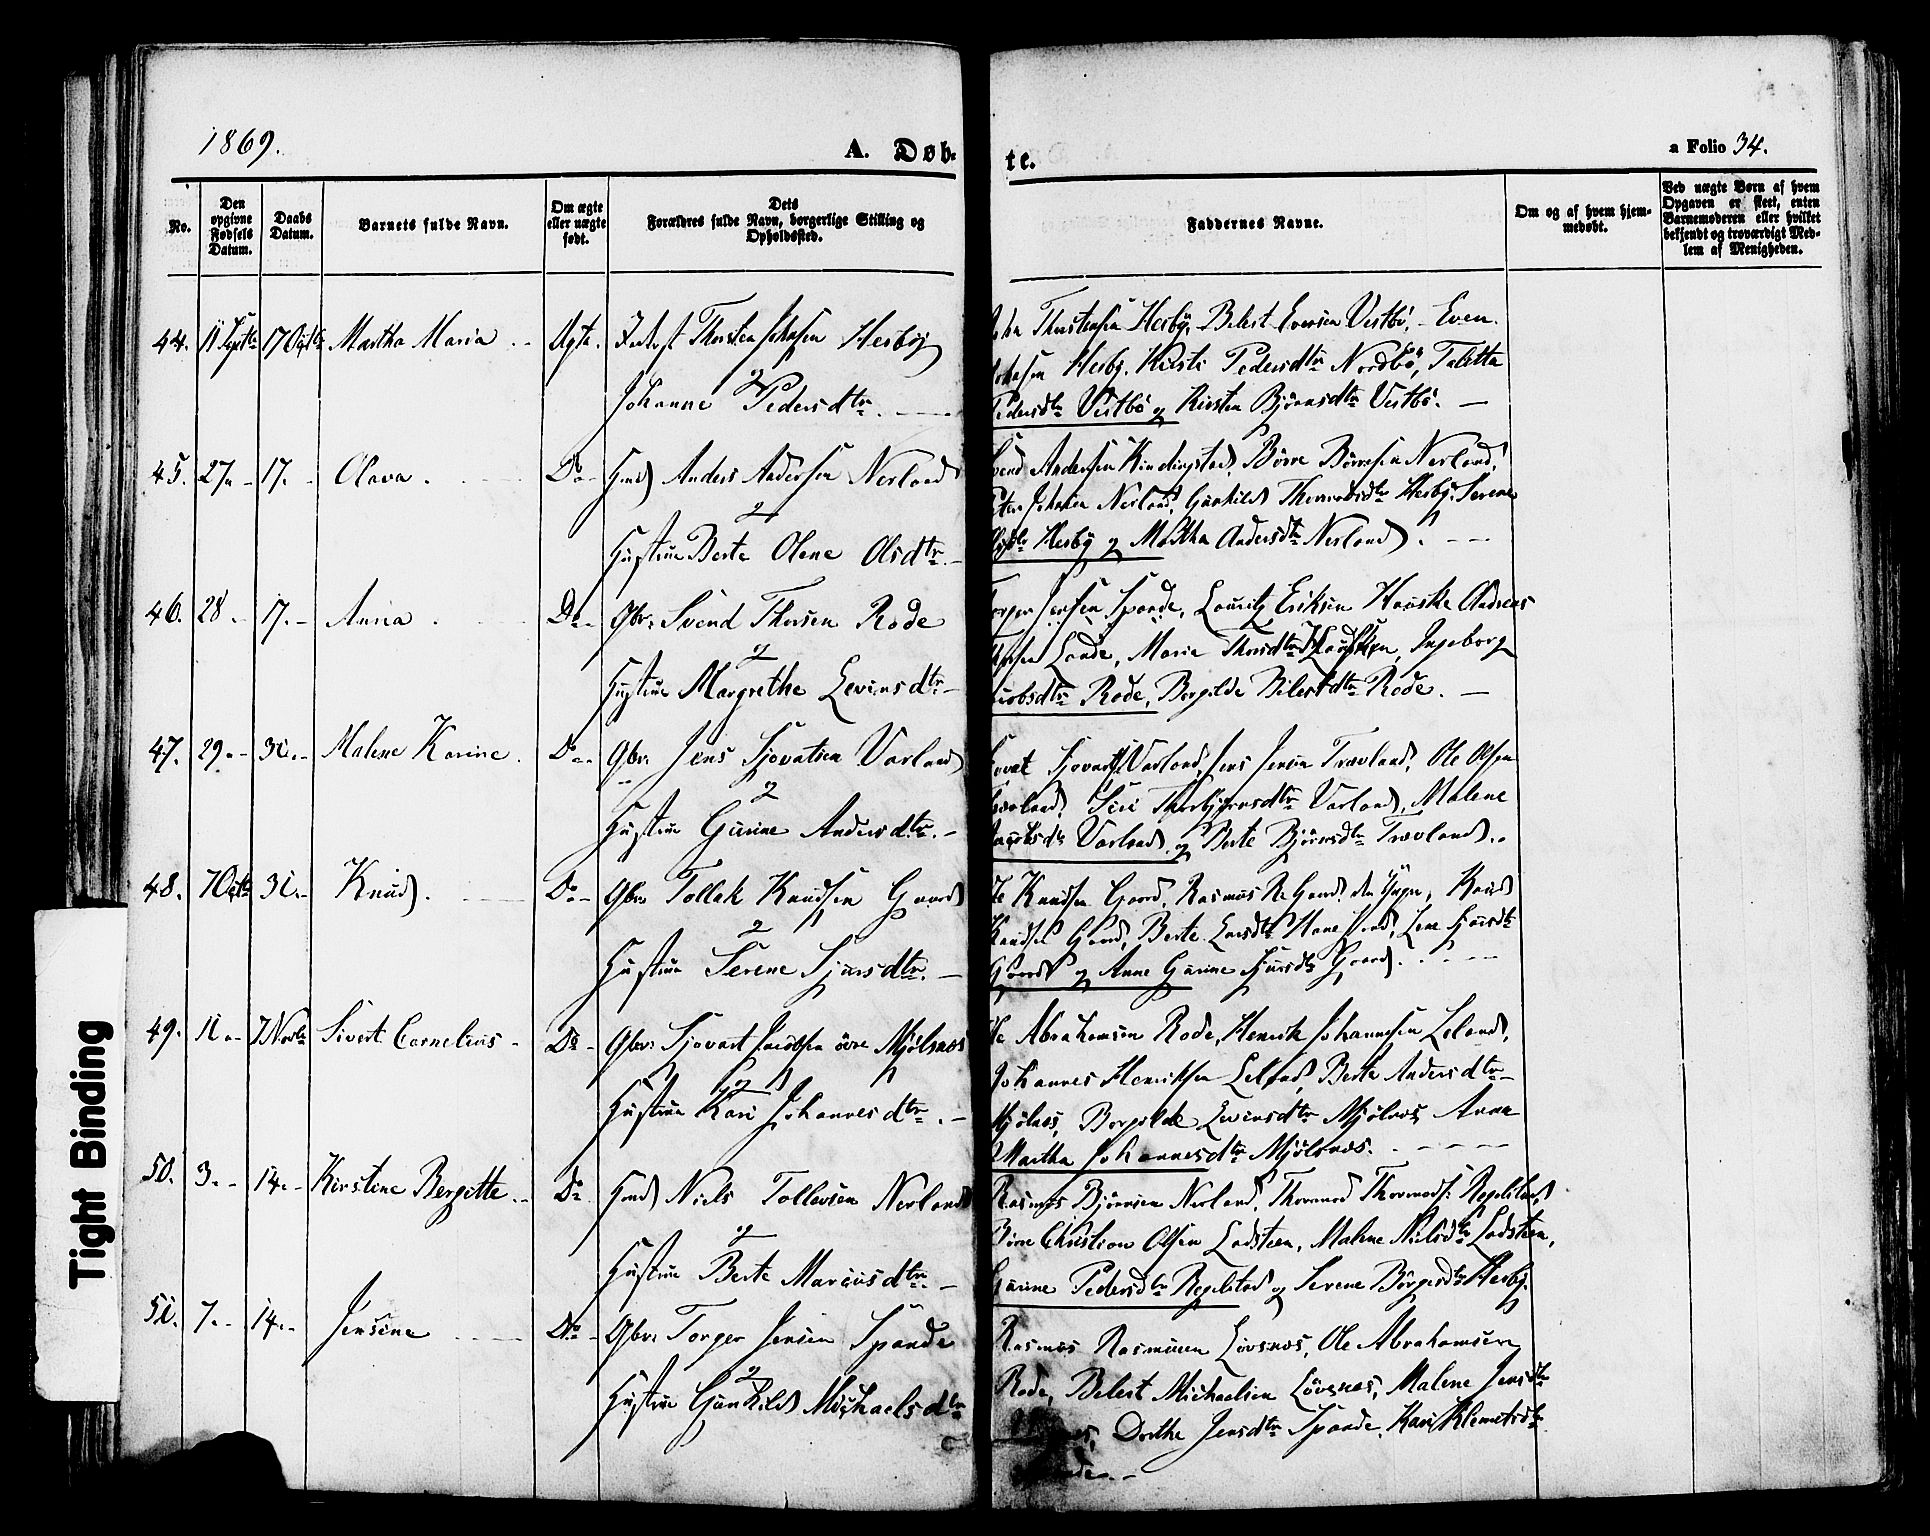 1869.
A. Døb-
te.
a Folio 34.
No.
Den opgivne Fødsels Datum.
Daabs Datum.
Barnets fulde Navn.
Om ægte eller uægte født.
Dets Forældres fulde Navn, borgerlige Stilling og Opholdssted.
Faddernes Navne.
Om og af hvem hjemmedøbt.
Ved uægte Børn af hvem Opgaven er skeet, enten Barnemoderen eller hvilket bekjendt og troværdigt Medlem af Menigheden.
44. 11 Septbr 17 Octbr Martha Maria Ægte. Thorsten Johnsen Hesby
og
Johanne Pedersdtr.
Thorstensen Hesby, Belest Evensen Vestbø, Even
Hesby. Kirsti Pedersdtr Nordbø, Talitta
Pedersdtr Vestbø og Kirsten Bjørnsdtr Vestbø.
45. 27 17. Olava. Do Hmd Anders Andersen Nerland
og
Hustrue Berte Olene Olsdtr.
Andersen Kindingstad, Børre Børresen Nerland,
Nerland, Gunhild Hesby, Serene
Hesby og Martha Andersdtr Nerland.
46. 28 17. Anna Do Gbr. Svend Thorsen Rode
og
Hustrue Margrethe Levinsdtr
Torger Jensen Spande, Lauritz Eriksen Hauske Andreas
Lande, Maria Thorsdtr Hausken, Ingeborg
Rode, Borgilde Bilestdtr Rode.
47. 29. 31. Malene Karine. Do Gbr. Jens Sjovatsen Varland
og
Hustrue Gurine Andersdtr.
Varland, Jens Jensen Trævland, Ole Olsen
Siri Thorbjørnsdtr Varland, Malene
Varland og Berte Bjørnsdtr Trævland.
48. 7 Octbr 31. Knud. Do Gbr. Tollak Knudsen Gaard
og
Hustrue Serene Sjursdtr.
Ole Knudsen Gaard, Rasmus R. Gaard den Yngre, Knud
Knudsen Gaard, Berte Larsdtr Lene Sjursdtr
Gaard og Anne Gurine Sjursdtr Gaard.
49. 11. 7 Novbr Sivert Cornelius Do Gbr. Sjovart Jacobsen övre Mjølsnæs
og
Hustrue Kari Johannesdtr.
Ole Abrahamsen Rode, Henrik Johannesen Leland,
Johannes Henriksen Leland, Berte Andersdtr
Mjølnæs, Borgilde Levinsdtr Mjølnæs Anna
Martha Johannesdtr Mjølsnæs.
50. 3. 14. Kirstene Bergitte. Do Hmd Niels Tollevsen Nerland
og
Hustrue Berte Mariusdtr.
Rasmus Bjørnsen Nerland, Thormod Thormods: Regelstad
Børre Christian Olsen Ladsteen, Malene Nielsdtr Ladsteen,
Gurine Pedersdtr Regelstad og Serene Børgesdtr Hesby.
51. 7. 14. Jensine Do Gbr. Torger Jensen Spande
og
Hustrue Gunhild Michaelsdtr
Rasmus Rasmusen Løvsnæs, Ole Abrahamsen
Rode, Belest Michaelsen Løvsnæs, Malene Jensdtr
Dorthe Jensdtr Spande, Kari Klemetsdtr
Tight Binding